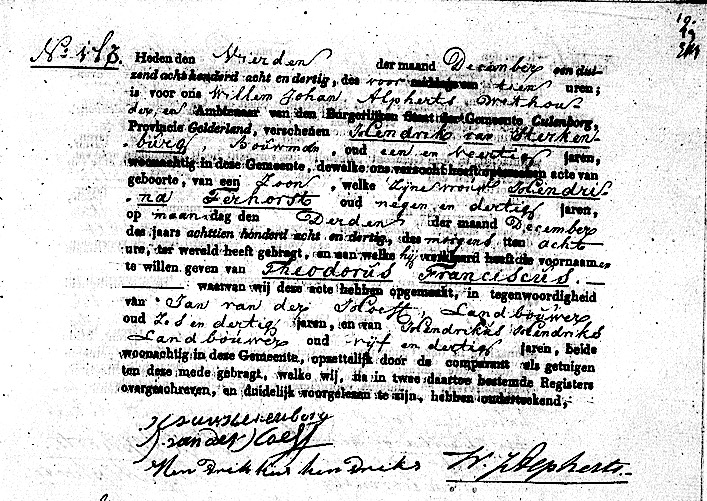 No. 113.
Heden den Vierden der maand December een dui-
zend acht honderd acht en dertig, des voor middags ten tien uren;
is voor ons Willem Johan Alpherts Wethou
der, en Ambtenaar van den Burgerlijken Staat der Gemeente Culenborg,
Provincie Gelderland, verschenen Hendrik van Sterken
burg, Bouwman, oud een en veertig jaren,
woonachtig in deze Gemeente, dewelke ons verzocht heeft optemaken acte van
geboorte, van een Zoon, welke zijne vrouw Hendri
na Terhorst oud negen en dertig jaren,
op maandag den Derden der maand December
des jaars achttien honderd acht en dertig, des morgens ten acht
ure, ter wereld heeft gebragt, en aan welke hij verklaard heeft de voornamen
te willen geven van Theodorus Franciscus.
waarvan wij deze acte hebben opgemaakt, in tegenwoordigheid
van Jan van der Koeff, Landbouwer
oud Zes en dertig jaren, en van Hendrikus Hendriks
Landbouwer oud vijf en dertig jaren, beide
woonachtig in deze Gemeente, opzettelijk door de comparant als getuigen
ten deze mede gebragt, welke wij, na in twee daartoe bestemde Registers
overgeschreven, en duidelijk voorgelezen te zijn, hebben onderteekend,
J. van der Koeff
Hendrikus hendriks W. J. Alpherts.